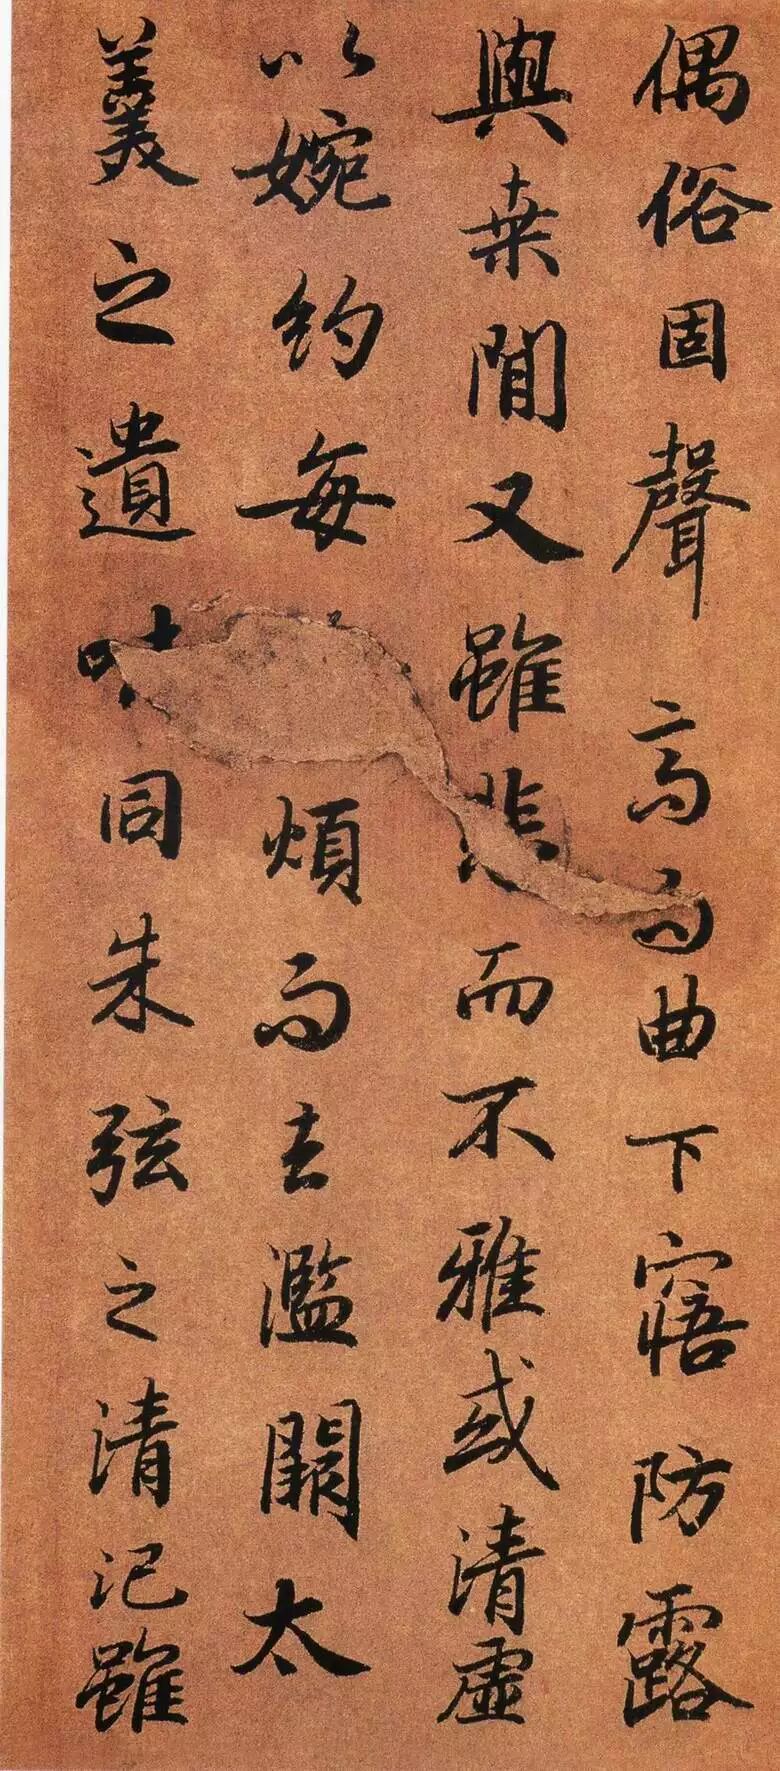 偶俗固聲高而曲下寤防露
與桒閒又雖悲而不雅或清虛
以婉約每煩而去濫闕太
羹之遺味同朱弦之清氾雖